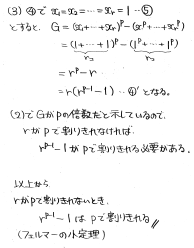 (3) ④で x₁=x₂=…=xᵣ=1…⑤
とすると、G=(x₁+…+xᵣ)ᵖ-(x₁ᵖ+…+xᵣᵖ)
=(1+…+1)ᵖ-(1ᵖ+…+1ᵖ)
r個 r個
=rᵖ-r
=r(rᵖ⁻¹-1)…④' となる。
(2)でGがpの倍数だと示しているので、
rがpで割りきれなければ、
rᵖ⁻¹-1がpで割りきれる必要がある。
以上から
rがpで割りきれないとき、
rᵖ⁻¹-1はpで割りきれる
(フェルマーの小定理)